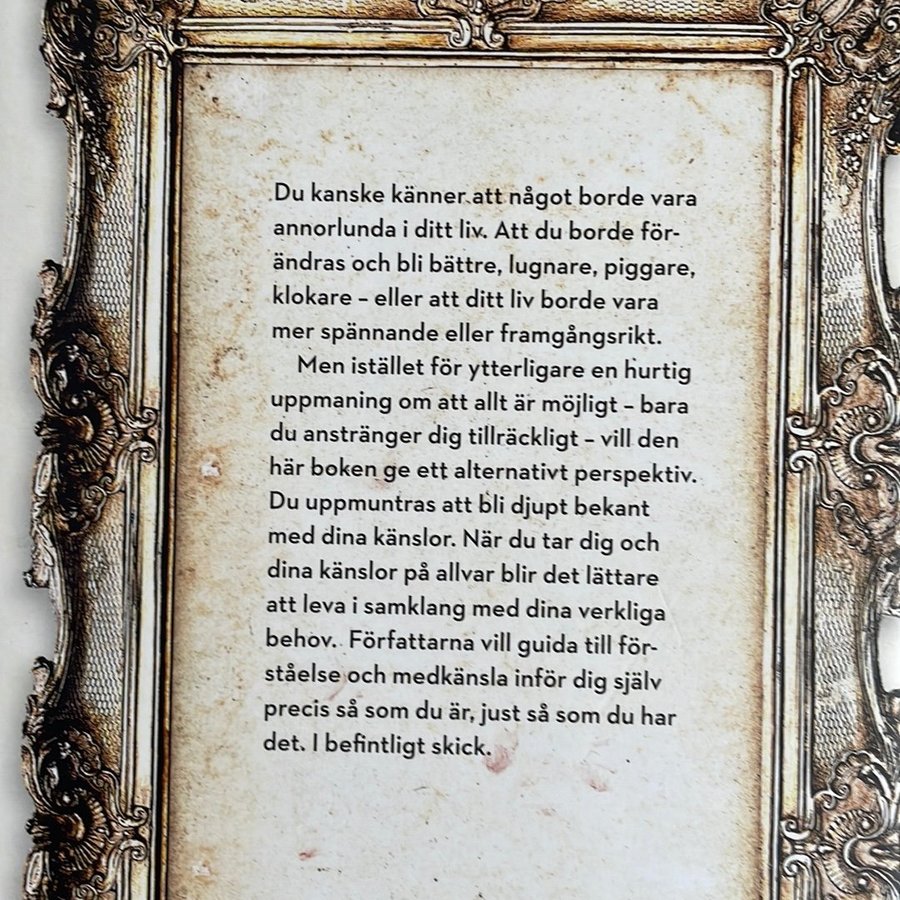 Du kanske känner att något borde vara
annorlunda i ditt liv. Att du borde för-
ändras och bli bättre, lugnare, piggare,
klokare – eller att ditt liv borde vara
mer spännande eller framgångsrikt.
Men istället för ytterligare en hurtig
uppmaning om att allt är möjligt – bara
du anstränger dig tillräckligt – vill den
här boken ge ett alternativt perspektiv.
Du uppmuntras att bli djupt bekant
med dina känslor. När du tar dig och
dina känslor på allvar blir det lättare
att leva i samklang med dina verkliga
behov. Författarna vill guida till för-
ståelse och medkänsla inför dig själv
precis så som du är, just så som du har
det. I befintligt skick.